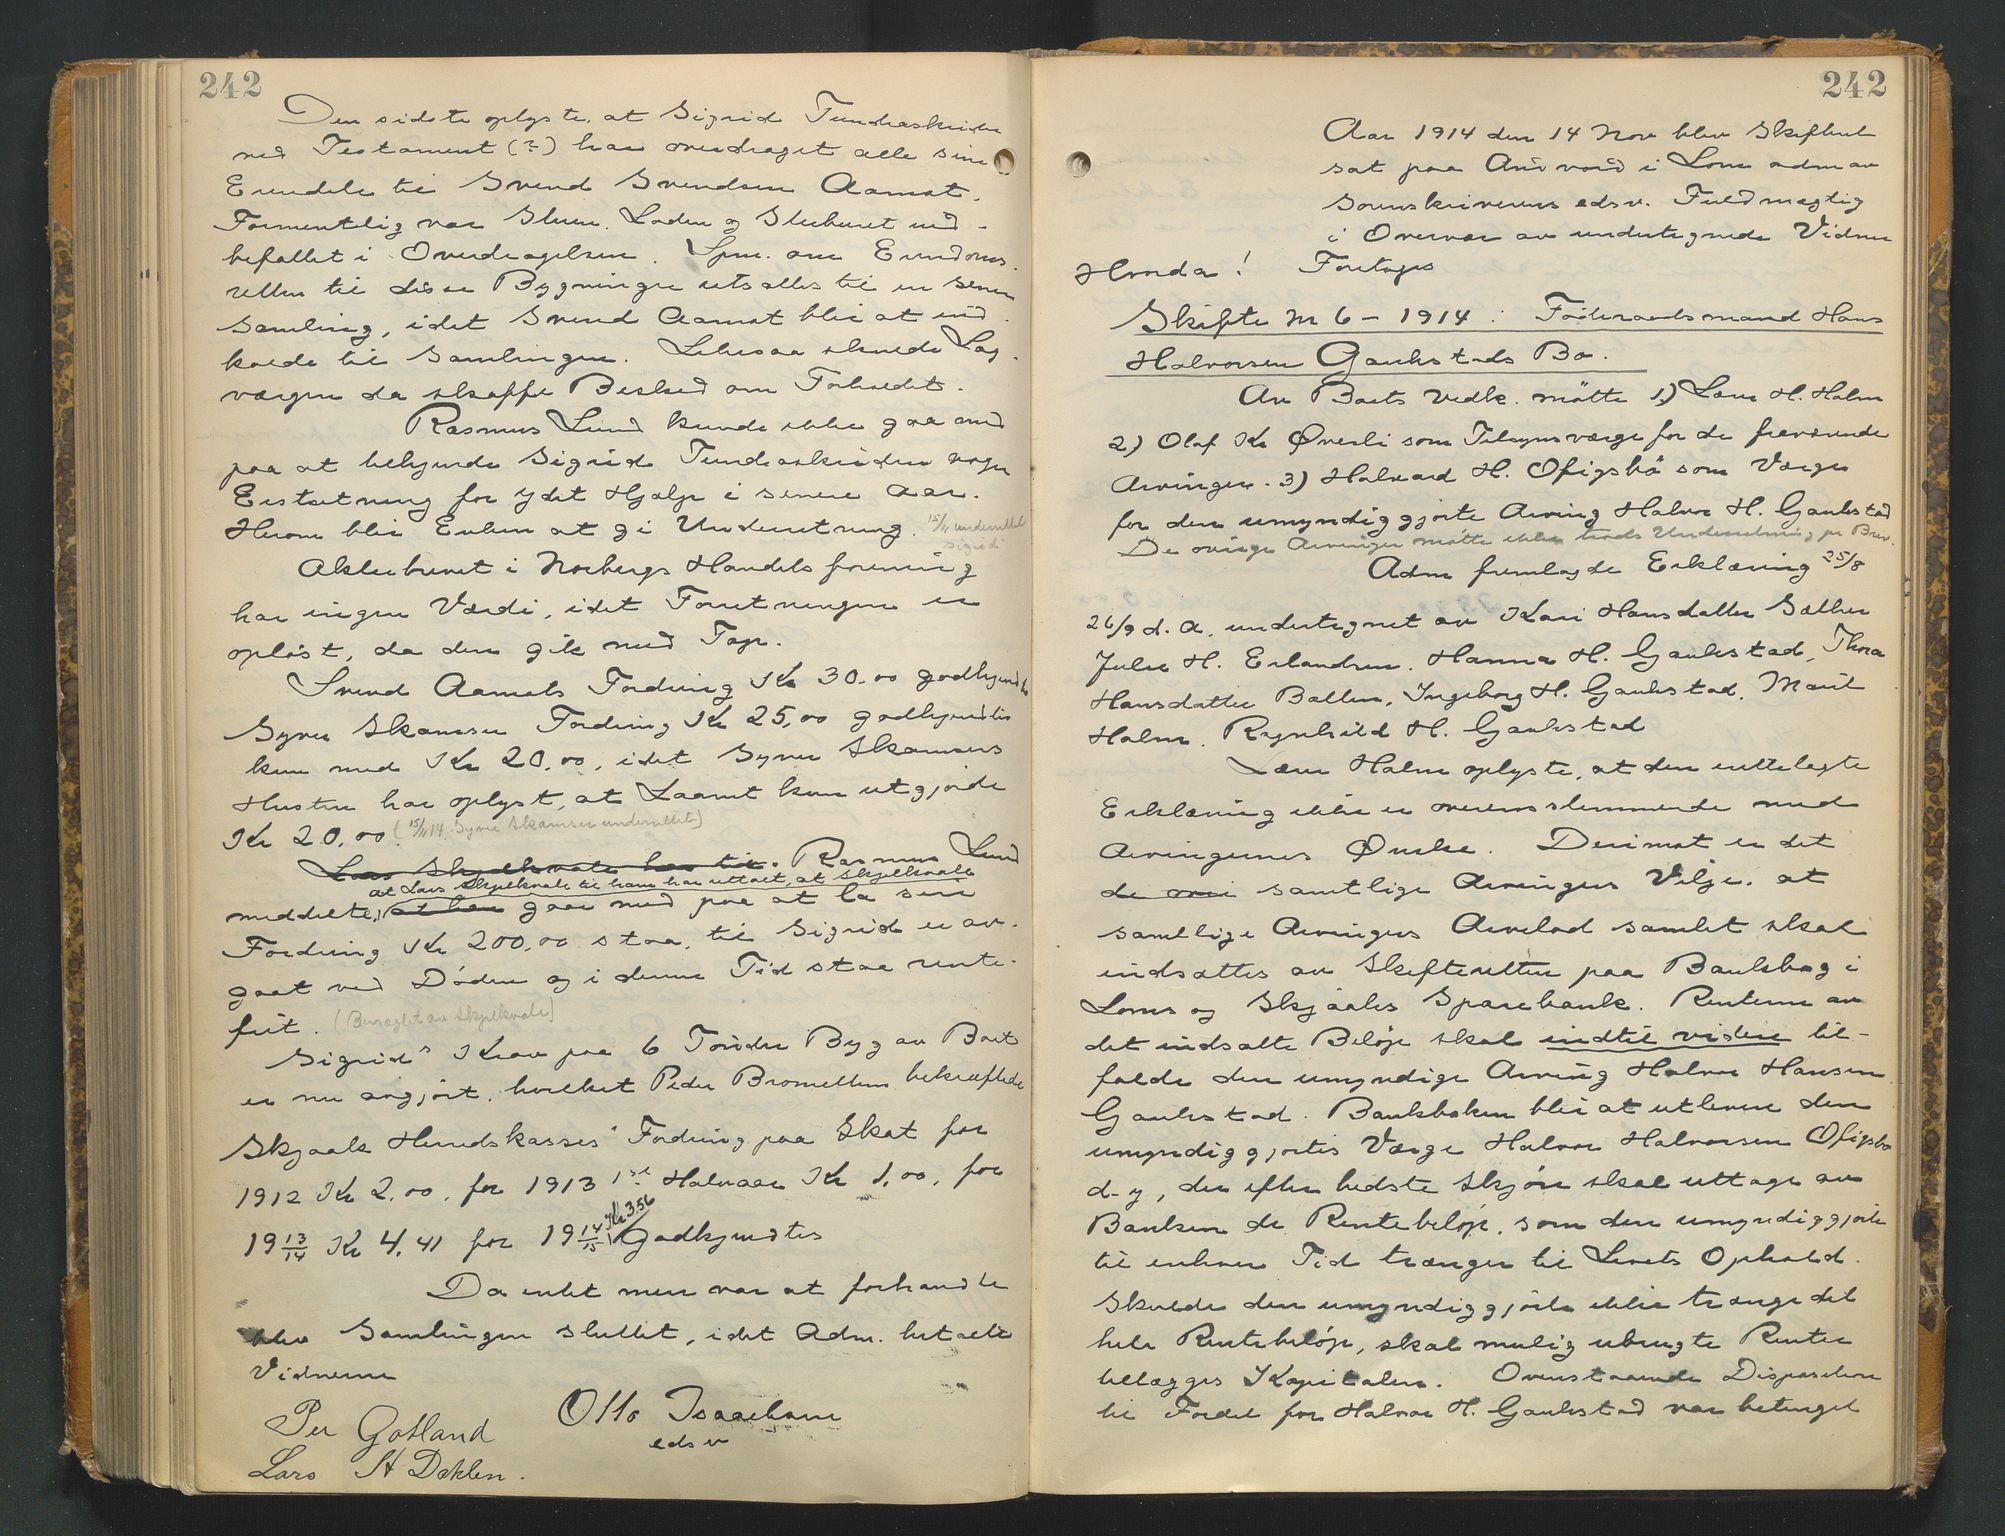 242
Den sidste oplyste, at Sigrid Tundraskriden
ved Testament (?) har overdraget alle sine
Eiendele til Svend Svendsen Aamot.
Formentlig var Stuen, Laden og Stabburet ind-
befattet i Overdragelsen. Spm. om Eiendoms-
retten til disse Bygninger utsættes til en senere
Samling, idet Svend Aamot blir at ind-
kalde til Samlingen. Likesaa skulde Lag-
værgen da skaffe Besked om Forholdet.
Rasmus Lund kunde ikke gaa med
paa at tilkjende Sigrid Tundraskriden nogen
Erstatning for ydet Hjælp i senere Aar.
Herom blir Enken at gi Underretning. 15/11 underrettet
Sigrid
Aktiebrevet i Norbergs Handelsforening
har ingen Værdi, idet Forretningen er
opløst, da den gik med Tap.
Svend Aamots Fordring Kr 30.00 godkjendtes
Syver Skamsar Fordring Kr 25,00 godkjendtes
kun med Kr 20,00, idet Syver Skamsars
Hustru har oplyst, at Laanet kun utgjorde
Kr 20.00 (15/11 14. Syver Skamsar underrettet)
Lars Skjelkvale har til. Rasmus Lund
at Lars Skjelkvale til ham har uttalt, at Skjelkvale
meddelte, at han gaar med paa at la sin
Fordring Kr 200,00 staa, til Sigrid er av-
gaat ved Døden og i denne Tid staa rente-
frit. (Benægtet av Skjelkvale)
Sigrids Krav paa 6 Tønder Byg av Boet
er nu avgjort, hvilket Peder Bromellem bekræftede
Skjaak Herredskasses Fordring paa Skat for
1912 Kr 2,00, for 1913 1ste Halvaar Kr 1,00, for
Kr 3.56
19 13/14 Kr 4,41 for 19 14/15 Godkjendtes
Da intet mere var at forhandle
blev Samlingen sluttet, idet Adm. betalte
Vidnerne
Otto Isaachsen
edsv
Per Gotland
Lars H Dahlen.
242
Aar 1914 den 14 Nov blev Skifteret
sat paa Andvord i Lom adm av
Sorenskriverens edsv. Fuldmægtig
i Overvær av undertegnede Vidner
Hvorda! Foretoges
Skifte Nr 6 - 1914 : Føderaadsmand Hans
Halvorsen Gaukstads Bo.
Av Boets Vedk. møtte 1.) Lars H. Holm
2.) Olaf Kr Øverli som Tilsynsværge for de fraværende
Arvinger. 3) Halvard H. Ofigsbø som Værge
for den umyndiggjorte Arving Halvor H. Gaukstad
De øvrige Arvinger møtte ikke trods Underretning pr Brev.
Adm fremlagde Erklæring 25/8
26/9 d. A. undertegnet av Kari Hansdatter Sæther
Julie H. Erlandsen. Hanna H. Gaukstad, Thora
Hansdatter Ballen, Ingeborg H. Gaukstad. Marit
Holm. Rynhild H. Gaukstad
Lars Holm oplyste, at den indtelagte
Erklæring ikke er overensstemmende med
Arvingernes Ønske. Derimot er det
de øvri samtlige Arvingers Vilje, at
samtlige Arvingers Arvelod samlet skal
indsættes av Skifteretten paa Bankbog i
Loms og Skjaaks Sparebank. Renterne av
det indsatte Beløp skal indtil videre til-
falde den umyndige Arving Halvor Hansen
Gaukstad. Bankboken blir at utlevere den
umyndiggjortes Værge Halvor Halvorsen Ofigsbø
d-y, der efter bedste Skjøn skal uttage av
Banken de Rentebeløp, som den umyndiggjorte
til enhver Tid trænger til Livets Ophold.
Skulde den umyndiggjorte ikke trænge det
hele Rentebeløp, skal mulig ubrugte Renter
tillægges Kapitalen. Ovenstaaende Disposition
til Fordel for Halvor H. Gaukstad var betinget